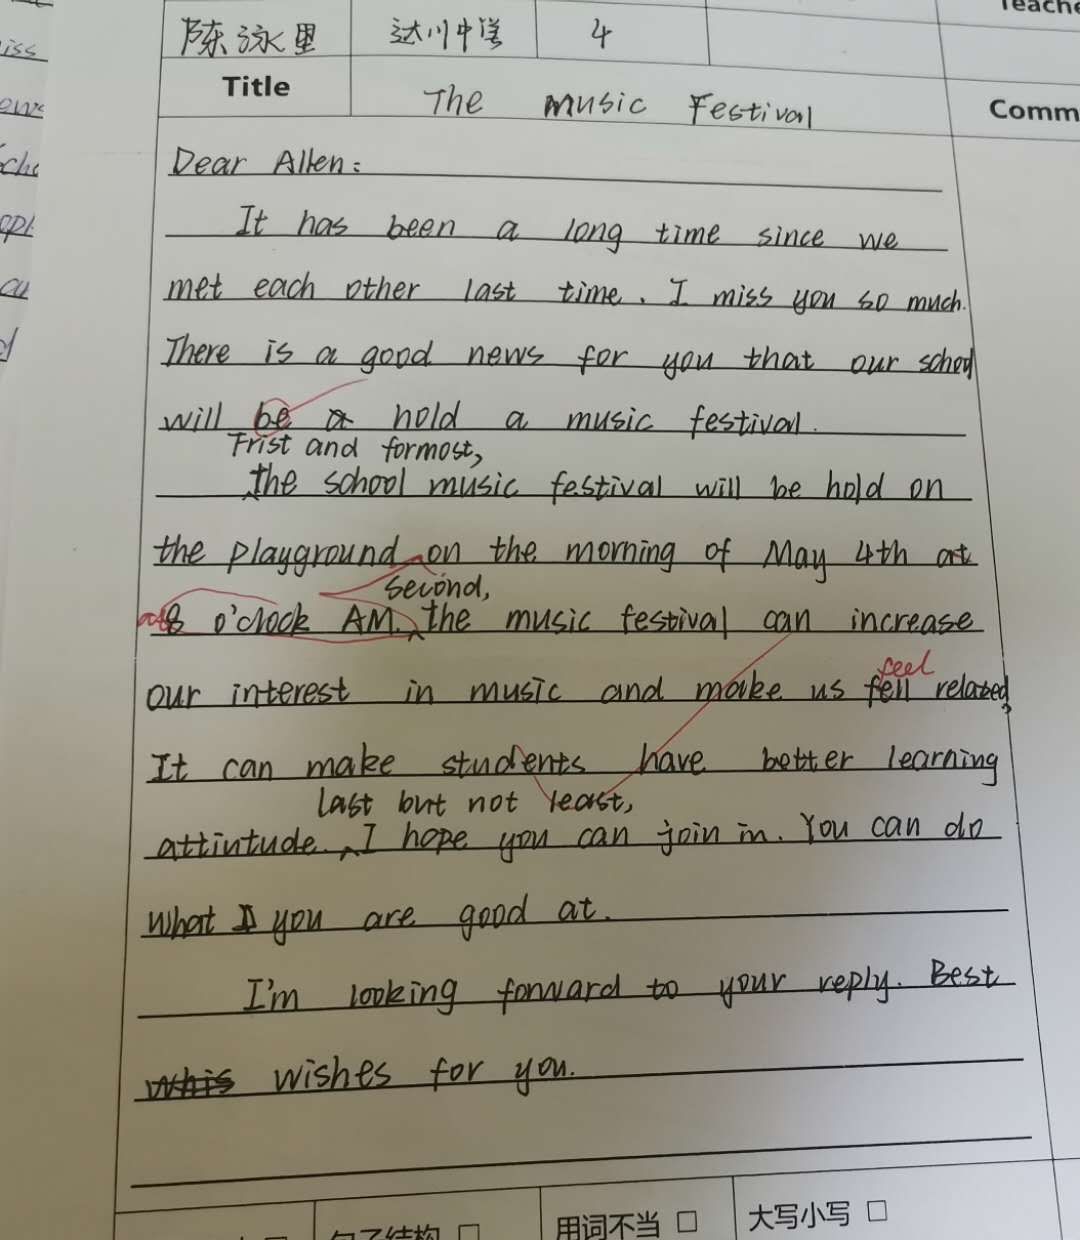 Teache
陈泳里 达川中学 4
Title The music Festival
Comm
Dear Allen:
It has been a long time since we
met each other last time. I miss you so much.
There is a good news for you that our school
will be hold a music festival.
Frist and formost,
the school music festival will be hold on
the playground on the morning of May 4th at
second,
at 8 o'clock AM. the music festival can increase
feel
our interest in music and make us fell relaxed,
It can make students have better learning
last but not least,
attintude. I hope you can join in. You can do
what you are good at.
I'm looking forward to your reply. Best
whis wishes for you.
句子结构 □ 用词不当 □ 大写小写 □